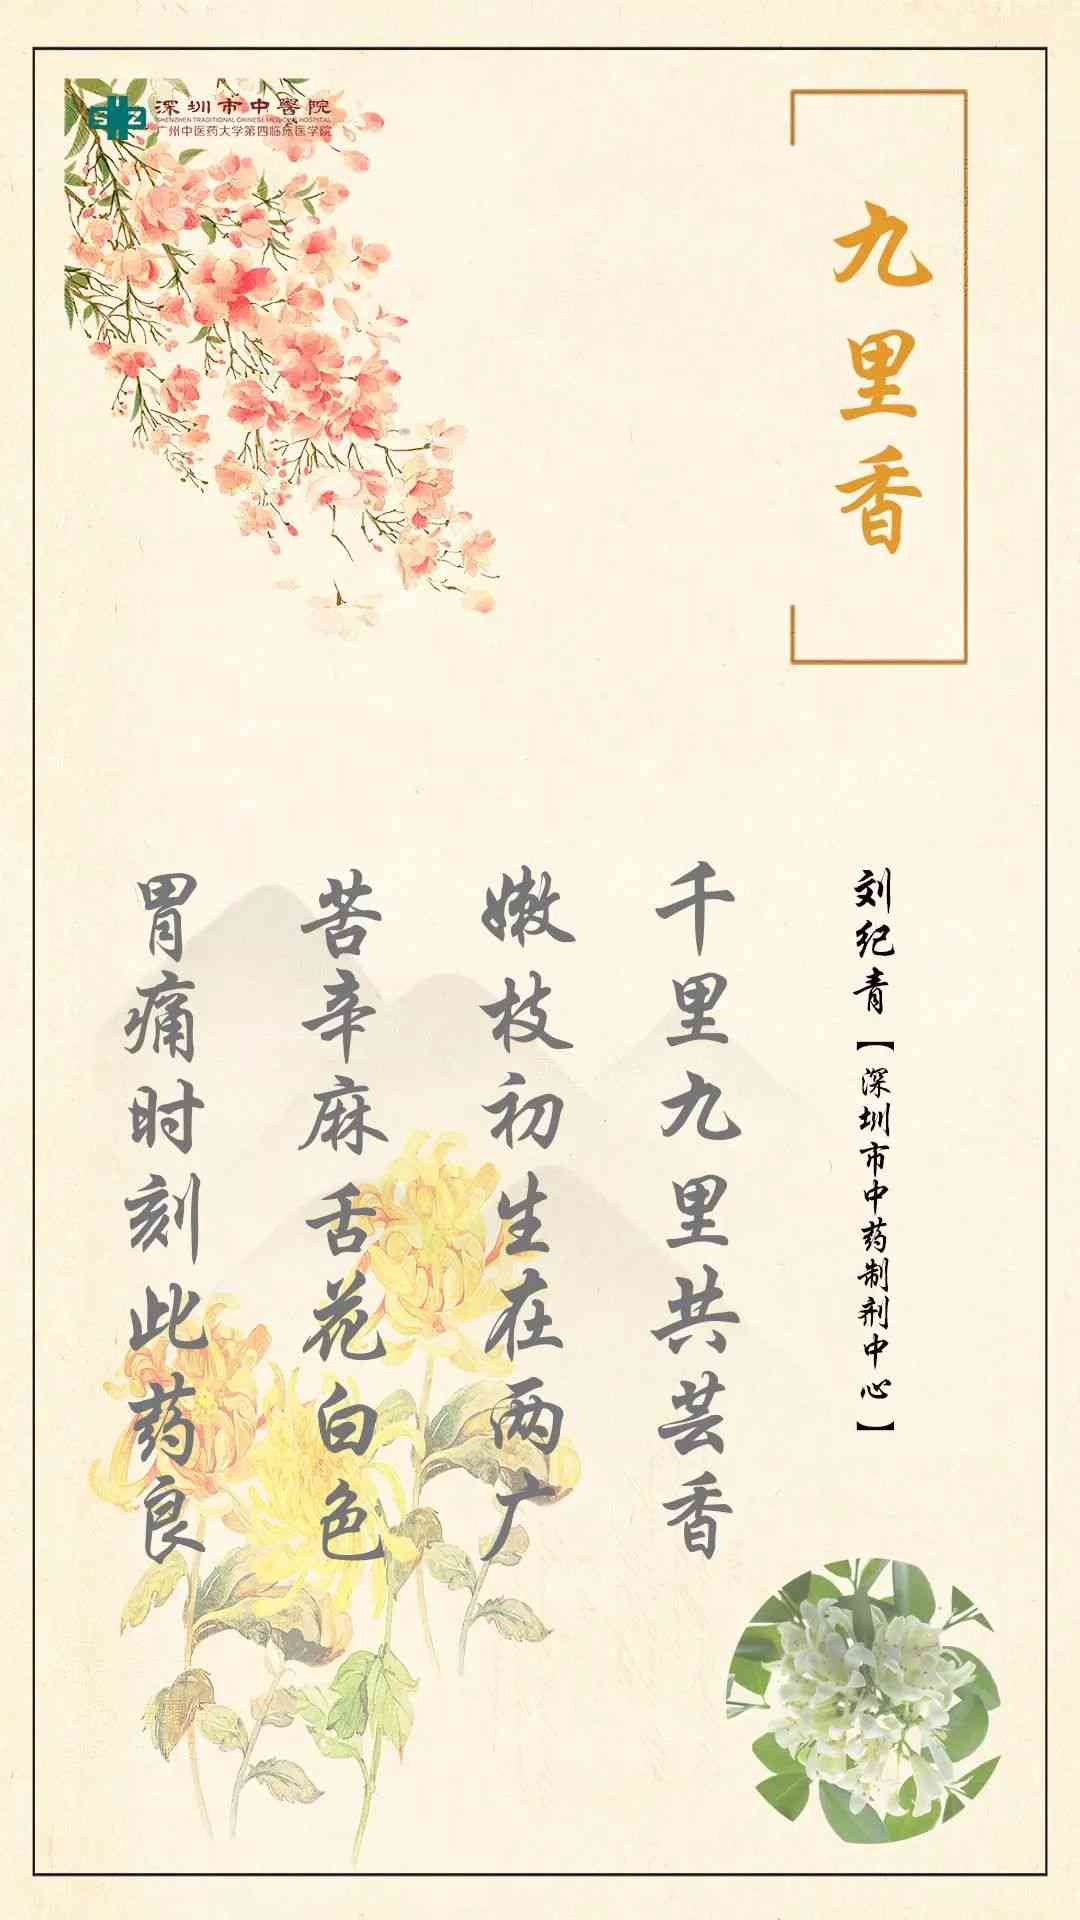 深圳市中醫院
SHENZHEN TRADITIONAL CHINESE MEDICINE HOSPITAL
广州中医药大学第四临床医学院
SZ
九里香
刘纪青【深圳市中药制剂中心】
千里九里共芸香
嫩枝初生在两广
苦辛麻舌花白色
胃痛时刻此药良